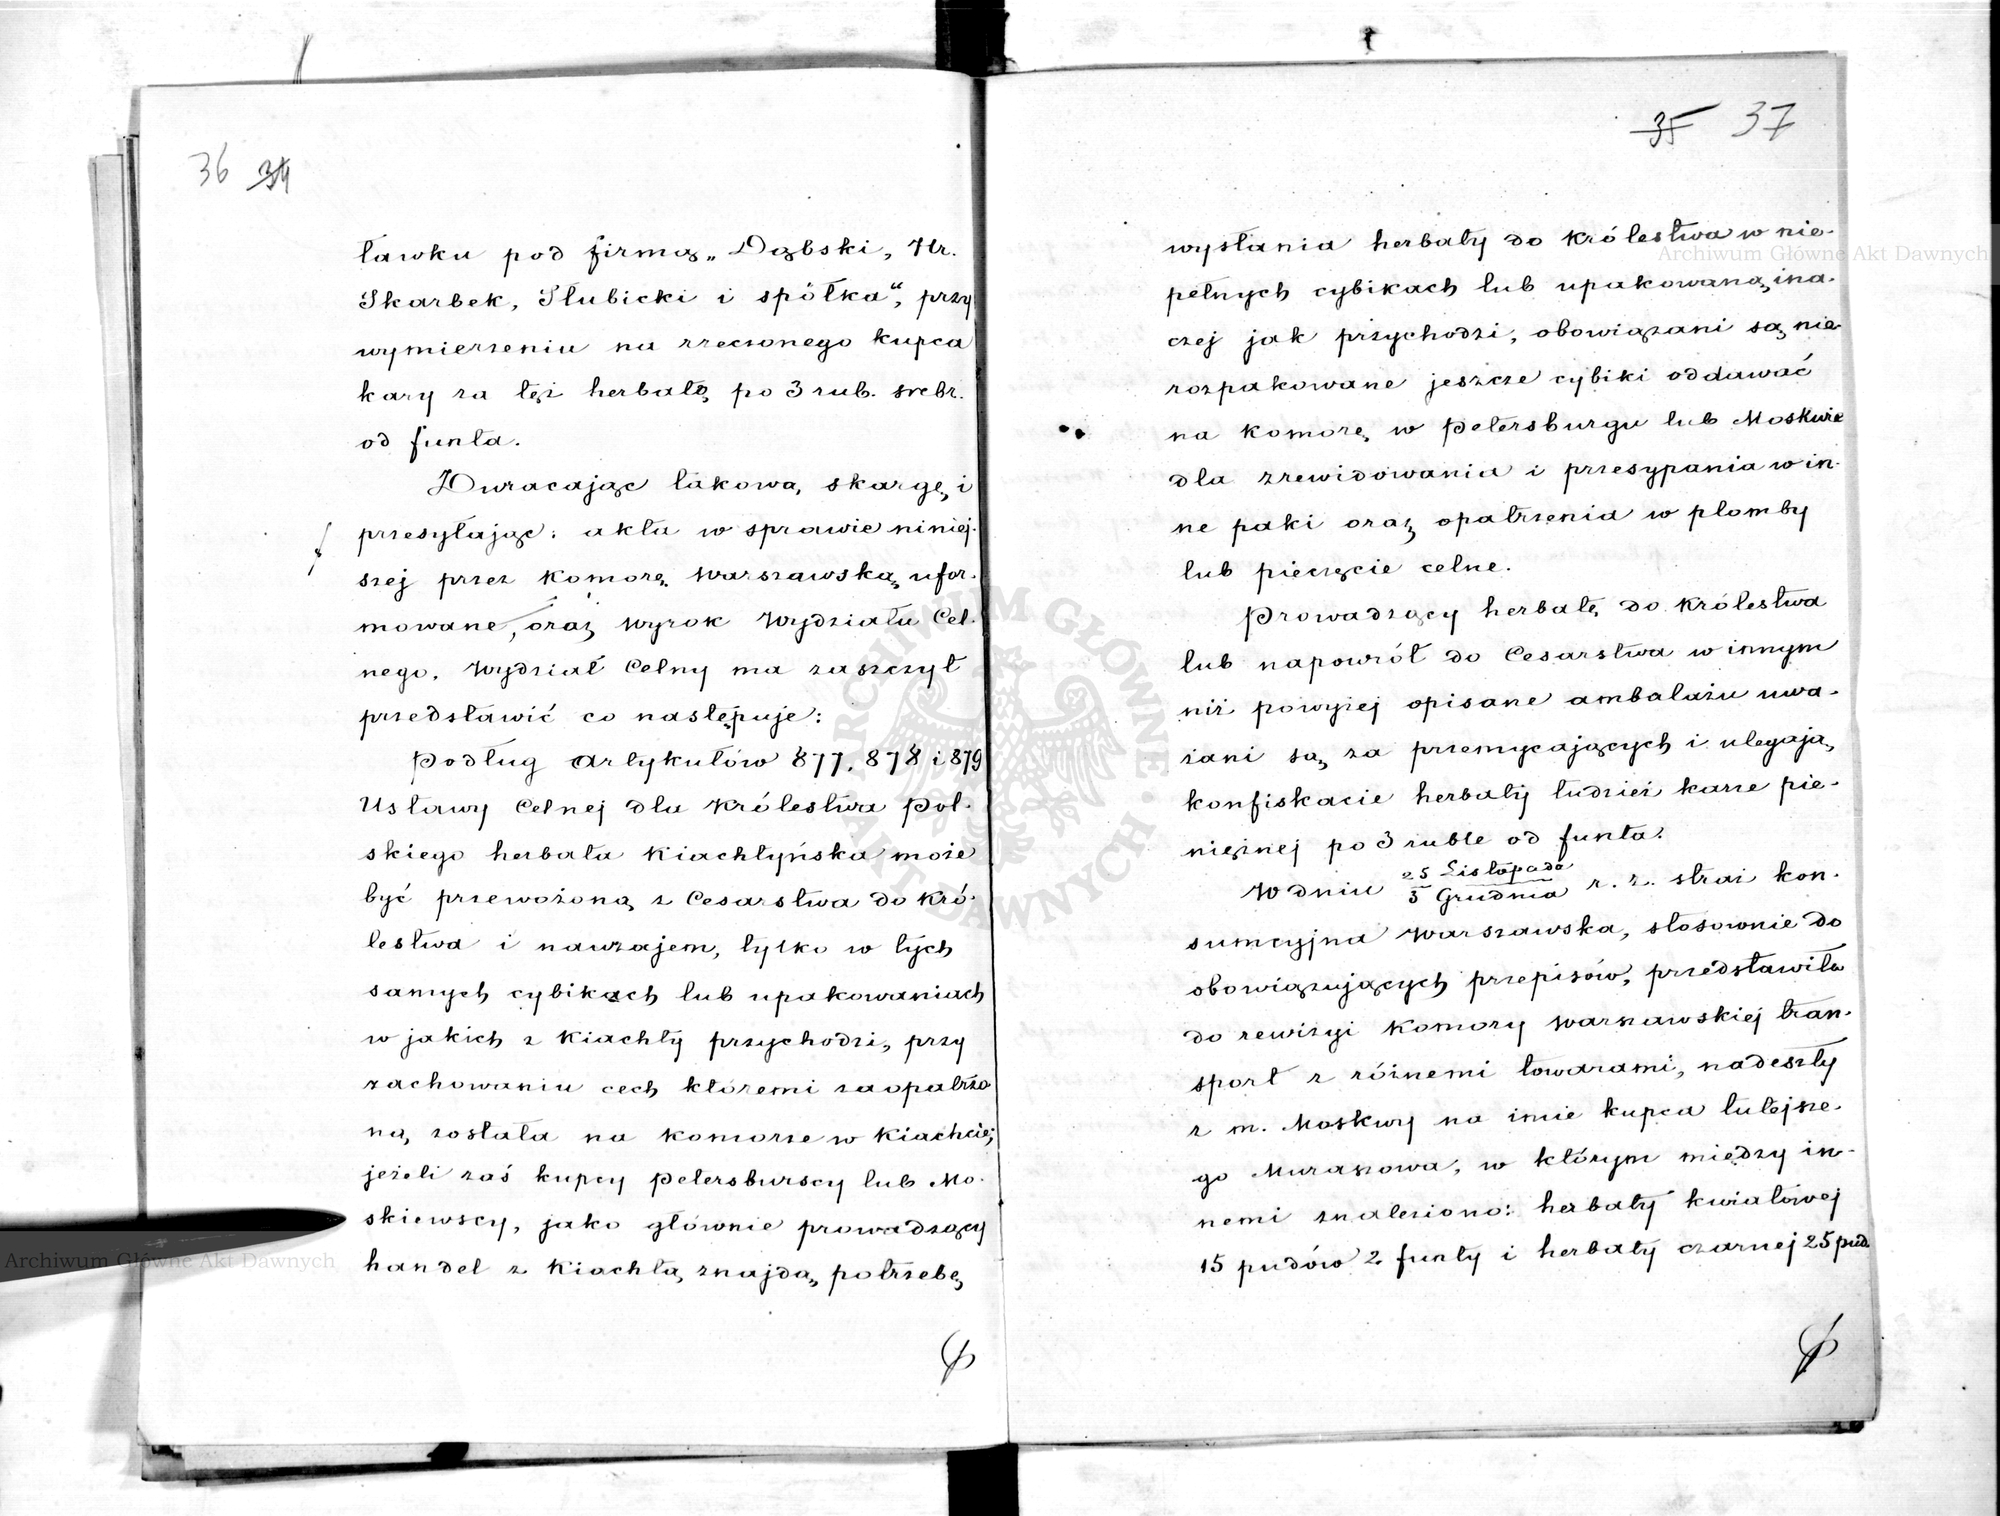 36 34
ławku pod firmą „Dąbski, Hr.
Skarbek, Słubicki i spółka“, przy
wymierzeniu na rzeczonego kupca
kary za tęż herbatę po 3 rub. srebr.
od funta.
Zwracając takową skargę i
przesyłając: akta w sprawie niniej-
szej przez Komorę Warszawską ufor-
mowane, oraz Wyrok Wydziału Cel-
nego, Wydział Celny ma zaszczyt
przedstawić co następuje:
Podług Artykułów 877, 878 i 879
Ustawy Celnej dla Królestwa Pol-
skiego herbata Kiachtyńska może
być przewożoną z Cesarstwa do Kró-
lestwa i nawzajem, tylko w tych
samych cybikach lub upakowaniach
w jakich z Kiachty przychodzi, przy
zachowaniu cech któremi zaopatrzo
ną została na komorze w Kiachcie;
jeżeli zaś kupcy Petersburscy lub Mo-
skiewscy, jako głównie prowadzący
handel z Kiachtą znajdą potrzebę
35 37
wysłania herbaty do Królestwa w nie-
pełnych cybikach lub upakowaną ina-
czej jak przychodzi, obowiązani są nie
rozpakowane jeszcze cybiki oddawać
na komorę w Petersburgu lub Moskwie
dla zrewidowania i przesypania w in-
ne paki oraz opatrzenia w plomby
lub pieczęcie celne.
Prowadzący herbatę do Królestwa
lub napowrót do Cesarstwa w innym
niż powyżej opisane ambalażu uwa-
żani są za przemycających i ulegają
konfiskacie herbaty tudzież karze pie-
niężnej po 3 ruble od funta.
W dniu 25 Listopada
5 Grudnia r. z. straż kon-
sumcyjna Warszawska, stosownie do
obowiązujących przepisów, przedstawiła
do rewizyi Komory Warszawskiej tran-
sport z różnemi towarami, nadeszły
z m. Moskwy na imie kupca tutejsze-
go Muraszowa, w którym między in-
nemi znaleziono: herbaty kwiatowej
15 pudów 2 funty i herbaty czarnej 25 pud.
ARCHIWUM GŁÓWNE AKT DAWNYCH
Archiwum Główne Akt Dawnych
Archiwum Główne Akt Dawnych